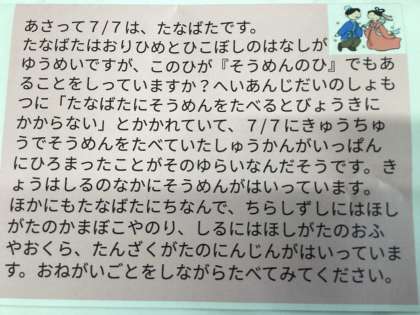 あさって７/７は、たなばたです。
たなばたはおりひめとひこぼしのはなしが
ゆうめいですが、このひが『そうめんのひ』でもあ
ることをしっていますか？へいあんじだいのしょも
つに「たなばたにそうめんをたべるとびょうきに
かからない」とかかれていて、７/７にきゅうちゅ
うでそうめんをたべていたしゅうかんがいっぱん
にひろまったことがそのゆらいなんだそうです。き
ょうはしるのなかにそうめんがはいっています。
ほかにもたなばたにちなんで、ちらしずしにはほし
がたのかまぼこやのり、しるにはほしがたのおふ
やおくら、たんざくがたのにんじんがはいっていま
す。おねがいごとをしながらたべてみてください。